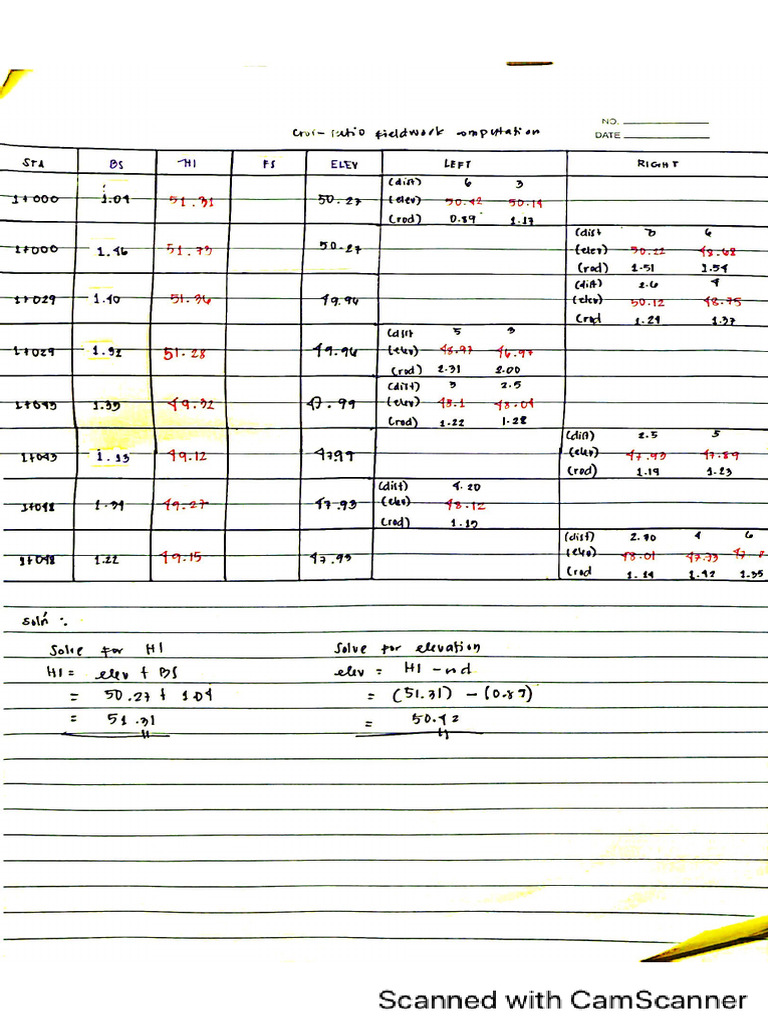 NO.
DATE
fieldwork
STA BS HI FS ELEV LEFT RIGHT
(dist) 6 3
1+000 1.04 51.31 50.27 (elev) 50.42 50.14
(rod) 0.89 1.17
(dist 3 6
1+000 1.46 51.73 50.27 (elev) 50.22 48.68
(rod) 1.51 1.54
(dist) 2.6 4
1+029 1.40 51.36 49.96 (elev) 50.12 48.75
(rod 1.24 1.37
(dist 5 3
1+029 1.32 51.28 49.96 (elev) 48.97 46.97
(rod) 2.31 2.00
(dist) 3 2.5
1+043 1.33 49.32 47.99 (elev) 48.1 48.04
(rod) 1.22 1.28
(dist) 2.5 5
1+043 1.13 49.12 47.99 (elev) 47.93 47.89
(rod) 1.19 1.23
(dist) 4.20
1+048 1.34 49.27 47.93 (elev) 48.12
(rod) 1.15
(dist) 2.70 4 6
1+048 1.22 49.15 47.93 (elev) 48.01 47.73
(rod 1.14 1.42 1.35
Sol'n :.
Solve for HI Solve for elevation
HI = elev + BS elev = HI - rod
= 50.27 + 1.04 = (51.31) - (0.89)
= 51.31 = 50.42
Scanned with CamScanner